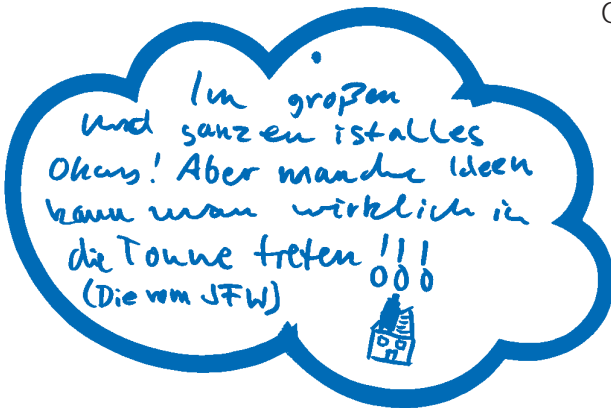 Im großen
und ganzen ist alles
Okay! Aber manche Ideen
kann man wirklich in
die Tonne treten!!!
(Die vom JFW)